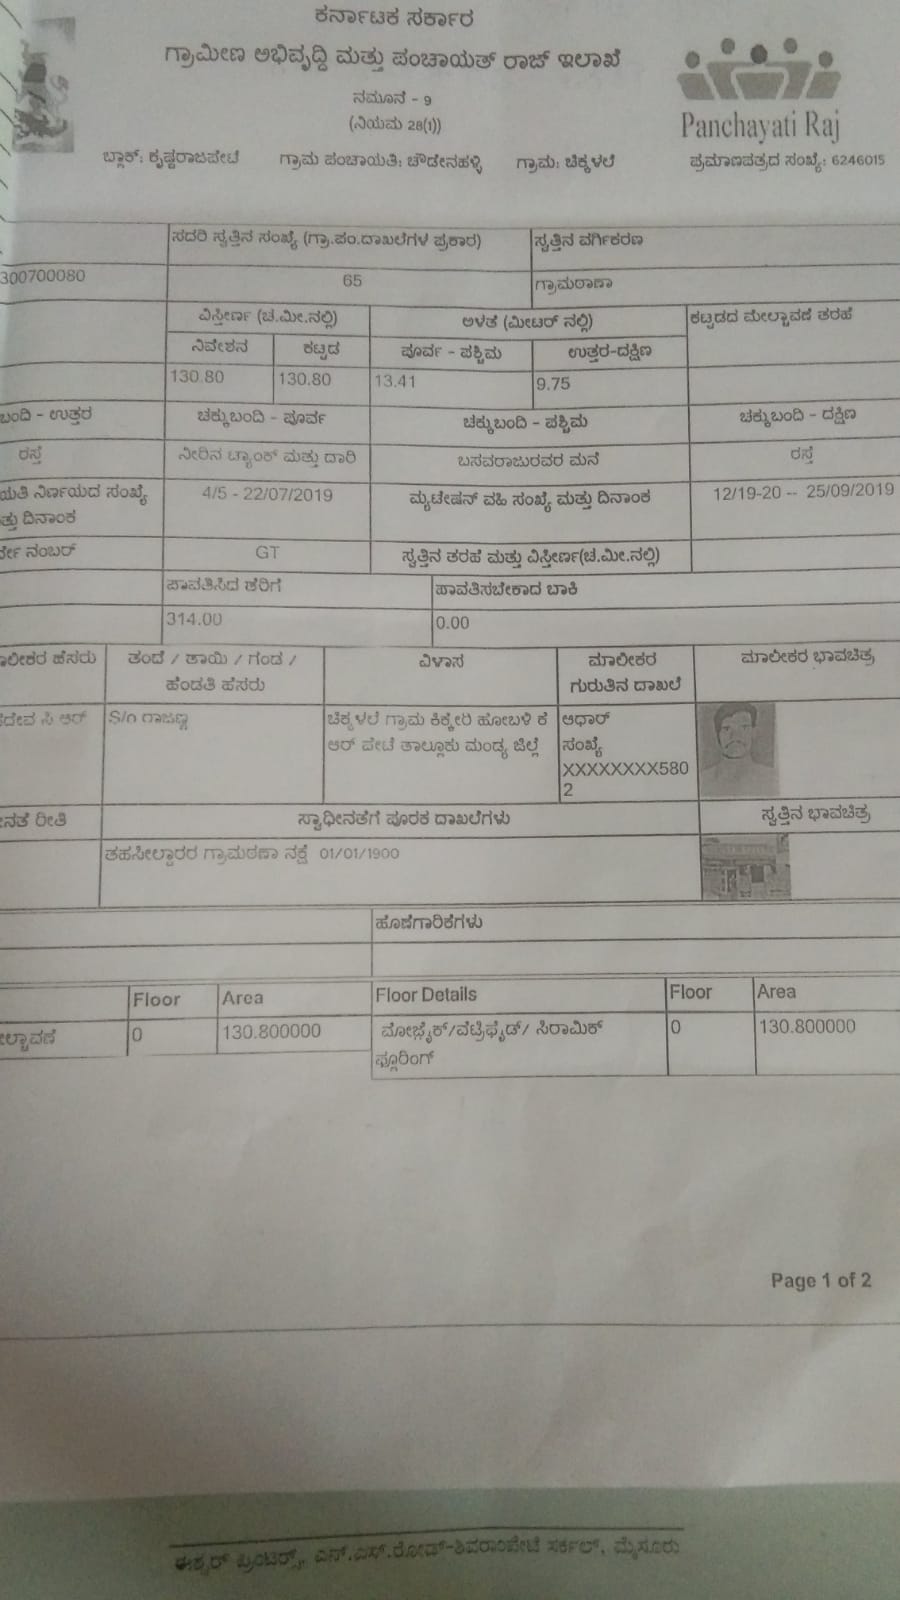 ಕರ್ನಾಟಕ ಸರ್ಕಾರ
ಗ್ರಾಮೀಣ ಅಭಿವೃದ್ದಿ ಮತ್ತು ಪಂಚಾಯತ್ ರಾಜ್ ಇಲಾಖೆ
ನಮೂನೆ - 9
(ನಿಯಮ 28(1))
Panchayati Raj
ಬ್ಲಾಕ್: ಕೃಷ್ಣರಾಜಪೇಟೆ ಗ್ರಾಮ ಪಂಚಾಯತಿ: ಚೌಡೇನಹಳ್ಳಿ ಗ್ರಾಮ: ಚಿಕ್ಕಳಲೆ ಪ್ರಮಾಣಪತ್ರದ ಸಂಖ್ಯೆ: 6246015
ಸದರಿ ಸ್ವತ್ತಿನ ಸಂಖ್ಯೆ (ಗ್ರಾ.ಪಂ.ದಾಖಲೆಗಳ ಪ್ರಕಾರ) ಸ್ವತ್ತಿನ ವರ್ಗಿಕರಣ
300700080 65 ಗ್ರಾಮಠಾಣಾ
ವಿಸ್ತೀರ್ಣ (ಚ.ಮೀ.ನಲ್ಲಿ) ಅಳತೆ (ಮೀಟರ್ ನಲ್ಲಿ) ಕಟ್ಟಡದ ಮೇಲ್ಚಾವಣಿ ತರಹೆ
ನಿವೇಶನ ಕಟ್ಟಡ ಪೂರ್ವ - ಪಶ್ಚಿಮ ಉತ್ತರ-ದಕ್ಷಿಣ
130.80 130.80 13.41 9.75
ಬಂದಿ - ಉತ್ತರ ಚಕ್ಕುಬಂದಿ - ಪೂರ್ವ ಚಕ್ಕುಬಂದಿ - ಪಶ್ಚಿಮ ಚಕ್ಕುಬಂದಿ - ದಕ್ಷಿಣ
ರಸ್ತೆ ನೀರಿನ ಟ್ಯಾಂಕ್ ಮತ್ತು ದಾರಿ ಬಸವರಾಜುರವರ ಮನೆ ರಸ್ತೆ
ಯತಿ ನಿರ್ಣಯದ ಸಂಖ್ಯೆ 4/5 - 22/07/2019 ಮ್ಯುಟೇಷನ್ ವಹಿ ಸಂಖ್ಯೆ ಮತ್ತು ದಿನಾಂಕ 12/19-20 -- 25/09/2019
ತ್ತು ದಿನಾಂಕ
ರ್ವೇ ನಂಬರ್ GT ಸ್ವತ್ತಿನ ತರಹೆ ಮತ್ತು ವಿಸ್ತೀರ್ಣ(ಚ.ಮೀ.ನಲ್ಲಿ)
ಪಾವತಿಸಿದ ತೆರಿಗೆ ಪಾವತಿಸಬೇಕಾದ ಬಾಕಿ
314.00 0.00
ಾಲೀಕರ ಹೆಸರು ತಂದೆ / ತಾಯಿ / ಗಂಡ / ವಿಳಾಸ ಮಾಲೀಕರ ಮಾಲೀಕರ ಭಾವಚಿತ್ರ
ಹೆಂಡತಿ ಹೆಸರು ಗುರುತಿನ ದಾಖಲೆ
ದೇವ ಸಿ ಆರ್ S/o ರಾಜಣ್ಣ ಚಿಕ್ಕಳಲೆ ಗ್ರಾಮ ಕಿಕ್ಕೇರಿ ಹೋಬಳಿ ಕೆ ಆಧಾರ್
ಆರ್ ಪೇಟೆ ತಾಲ್ಲೂಕು ಮಂಡ್ಯ ಜಿಲ್ಲೆ ಸಂಖ್ಯೆ
XXXXXXXX580
2
ನತೆ ರೀತಿ ಸ್ವಾಧೀನತೆಗೆ ಪೂರಕ ದಾಖಲೆಗಳು ಸ್ವತ್ತಿನ ಭಾವಚಿತ್ರ
ತಹಸೀಲ್ದಾರರ ಗ್ರಾಮಠಾಣಾ ನಕ್ಷೆ 01/01/1900
ಹೊಣೆಗಾರಿಕೆಗಳು
Floor Area Floor Details Floor Area
ಲ್ಚಾವಣಿ 0 130.800000 ಮೋಜೈಕ್/ವೆಟ್ರಿಫೈಡ್/ ಸಿರಾಮಿಕ್ 0 130.800000
ಫ್ಲೂರಿಂಗ್
Page 1 of 2
ಈಶ್ವರ್ ಪ್ರಿಂಟರ್ಸ್, ಎನ್.ಎಸ್.ರೋಡ್-ಶಿವರಾಂಪೇಟೆ ಸರ್ಕಲ್, ಮೈಸೂರು